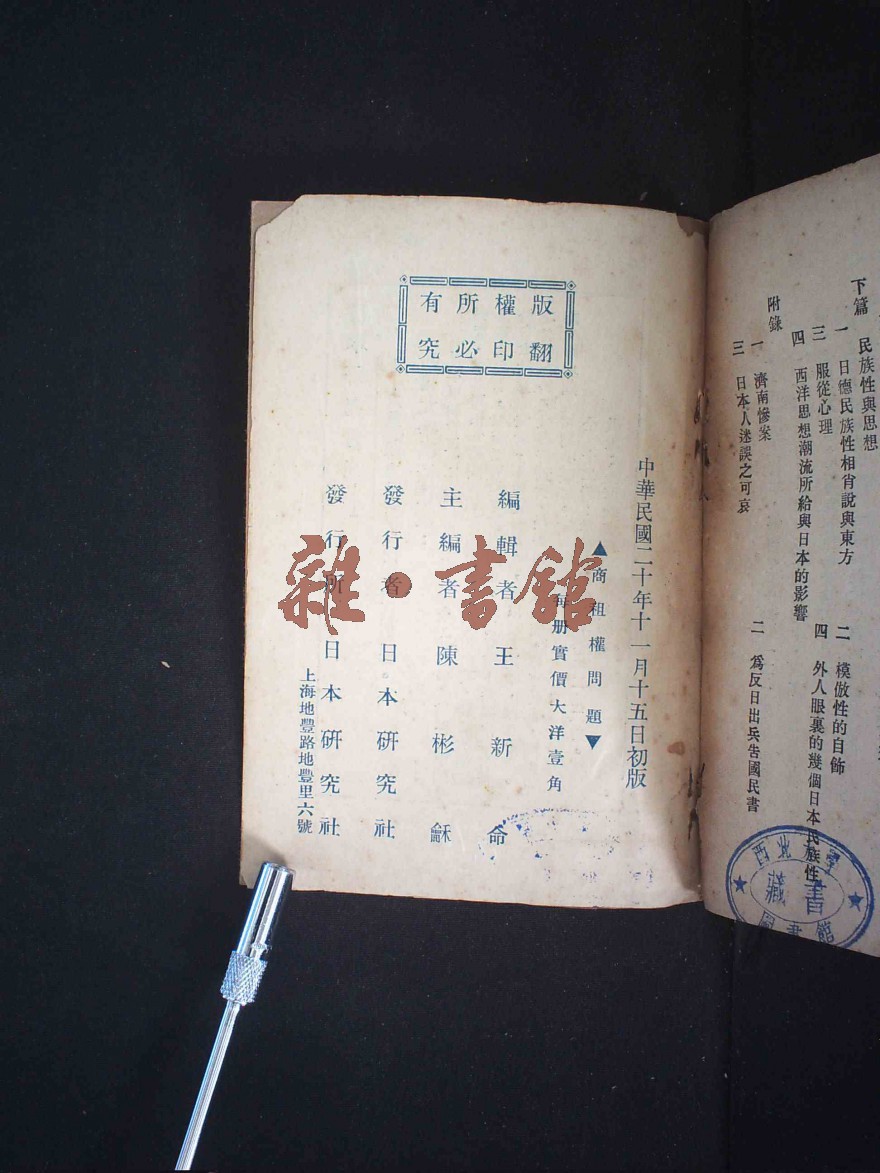 下篇　民族性與思想
一　日德民族性相肖說與東方
二　模倣性的自飾
三　服從心理
四　外人眼裏的幾個日本民族性
四　西洋思想潮流所給與日本的影響
附錄
一　濟南慘案
二　爲反日出兵告國民書
三　日本人迷誤之可哀
西北大學
藏書
圖書館
版權所有
翻印必究
中華民國二十年十一月十五日初版
▲商租權問題▼
每册實價大洋壹角
編輯者　王新命
主編者　陳彬龢
發行者　日本研究社
發行所　日本研究社
上海地豐路地豐里六號
雜·書館